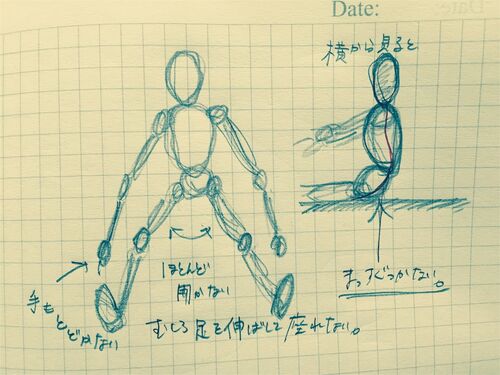 Date:
横から見ると
ほとんど
開かない
まっすぐつかない。
手も
とどかない
むしろ足を伸ばして座れない。